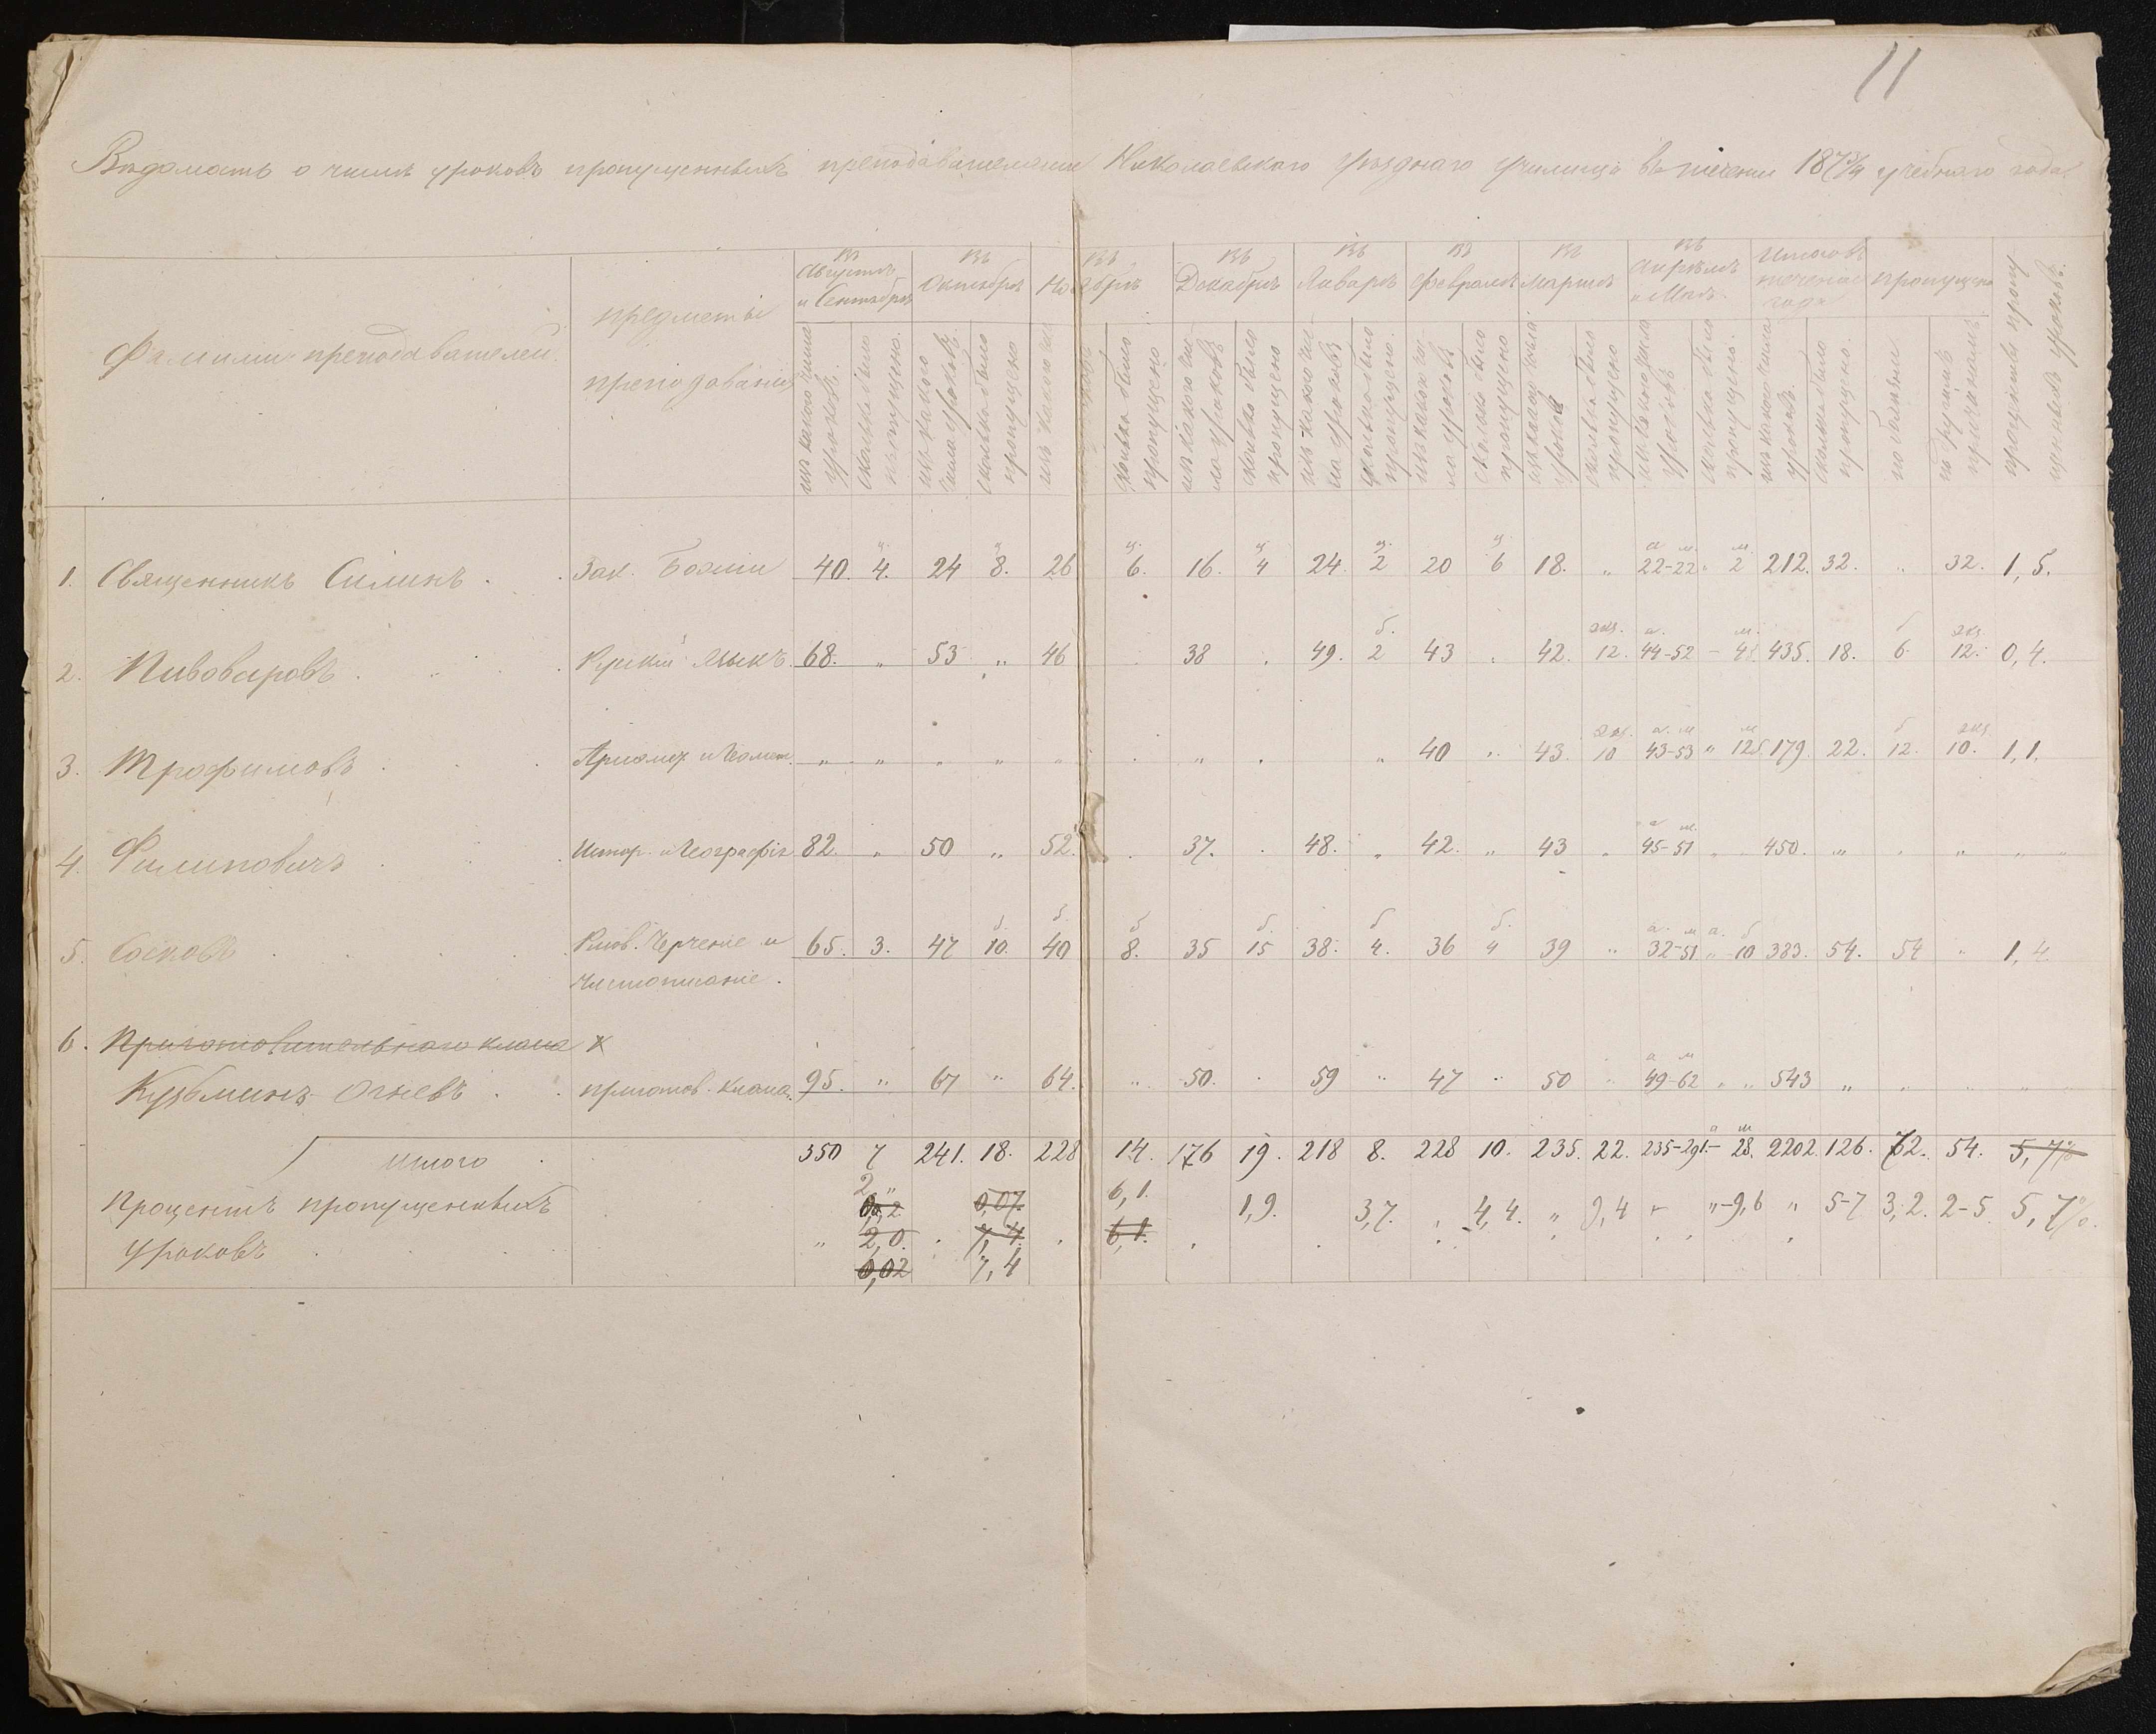 11
Вѣдомость о числѣ уроковъ пропущенныхъ преподавателями Николаевскаго Уѣзднаго Училища въ теченіи 1873/4 учебнаго года.
Фамиліи преподавателей. предметы преподаванія
въ Августѣ и Сентябрѣ въ Октябрѣ въ Ноябрѣ въ Декабрѣ въ Январѣ въ Февралѣ въ Мартѣ въ Апрѣлѣ и Маѣ Итого въ теченіе года пропущено проценты пропущенныхъ уроковъ.
изъ какого числа уроковъ. сколько было пропущено. изъ какого числа уроковъ. сколько было пропущено изъ какого числа уроковъ сколько было пропущено изъ какого числа уроковъ сколько было пропущено изъ какого числа уроковъ сколько было пропущено. изъ какого числа уроковъ сколько было пропущено изъ какого числа уроковъ сколько было пропущено изъ какого числа уроковъ сколько было пропущено. изъ какого числа уроковъ. сколько было пропущено. по болѣзни по другимъ причинамъ.
1. Священникъ Силинъ . . Зак. Божій 40. 4. 24 8. 26 6. 16. 4 24. 2 20 6 18. „ 22-22 „ 2 212. 32. „ 32. 1,5.
2. Пивоваровъ . . . Русскій языкъ. 68. „ 53 „ 46 38 . 49. 2 43 . 42. 12. 44-52 435. 18. 6. 12. 0,4.
3. Трофимовъ . . . Ариѳмет. и Геомет. „ „ „ „ „ . „ . „ 40 „ 43. 10 43-53 „ 179. 22. 12. 10. 1,1.
4. Филиповичъ . . Истор. и Географія 82. „ 50 „ 52. . 37. . 48. „ 42. „ 43 „ 45-51 „ 450. „ . „ „
5. Сосновъ . . . . Рисов. Черченіе и 65. 3. 47 10. 40 8. 35 15 38. 4. 36 4 39 „ 32-51 „ 10 383. 54. 54 „ 1,4.
Чистописаніе.
6. Приготовительнаго класса х
Кузьминъ-Огневъ . . приготов. класса. 95. „ 67 „ 64. „ 50. . 59 „ 47 „ 50 „ 49-62 „ „ 543 „ „
Итого . 350 7 241. 18. 228 14. 176 19. 218 8. 228 10. 235. 22. 235-291.- 28. 2202. 126. 72. 54. 5,7%
Процентъ пропущенныхъ 2 „ 0,07. 6,1. 1,9. 3,7. „ 4,4. „ 9,4 „-9,6 „ 5-7 3,2. 2-5 5,7%.
уроковъ . . . „ 2,0. . 7,4. . 6,1.
0,02 7,4